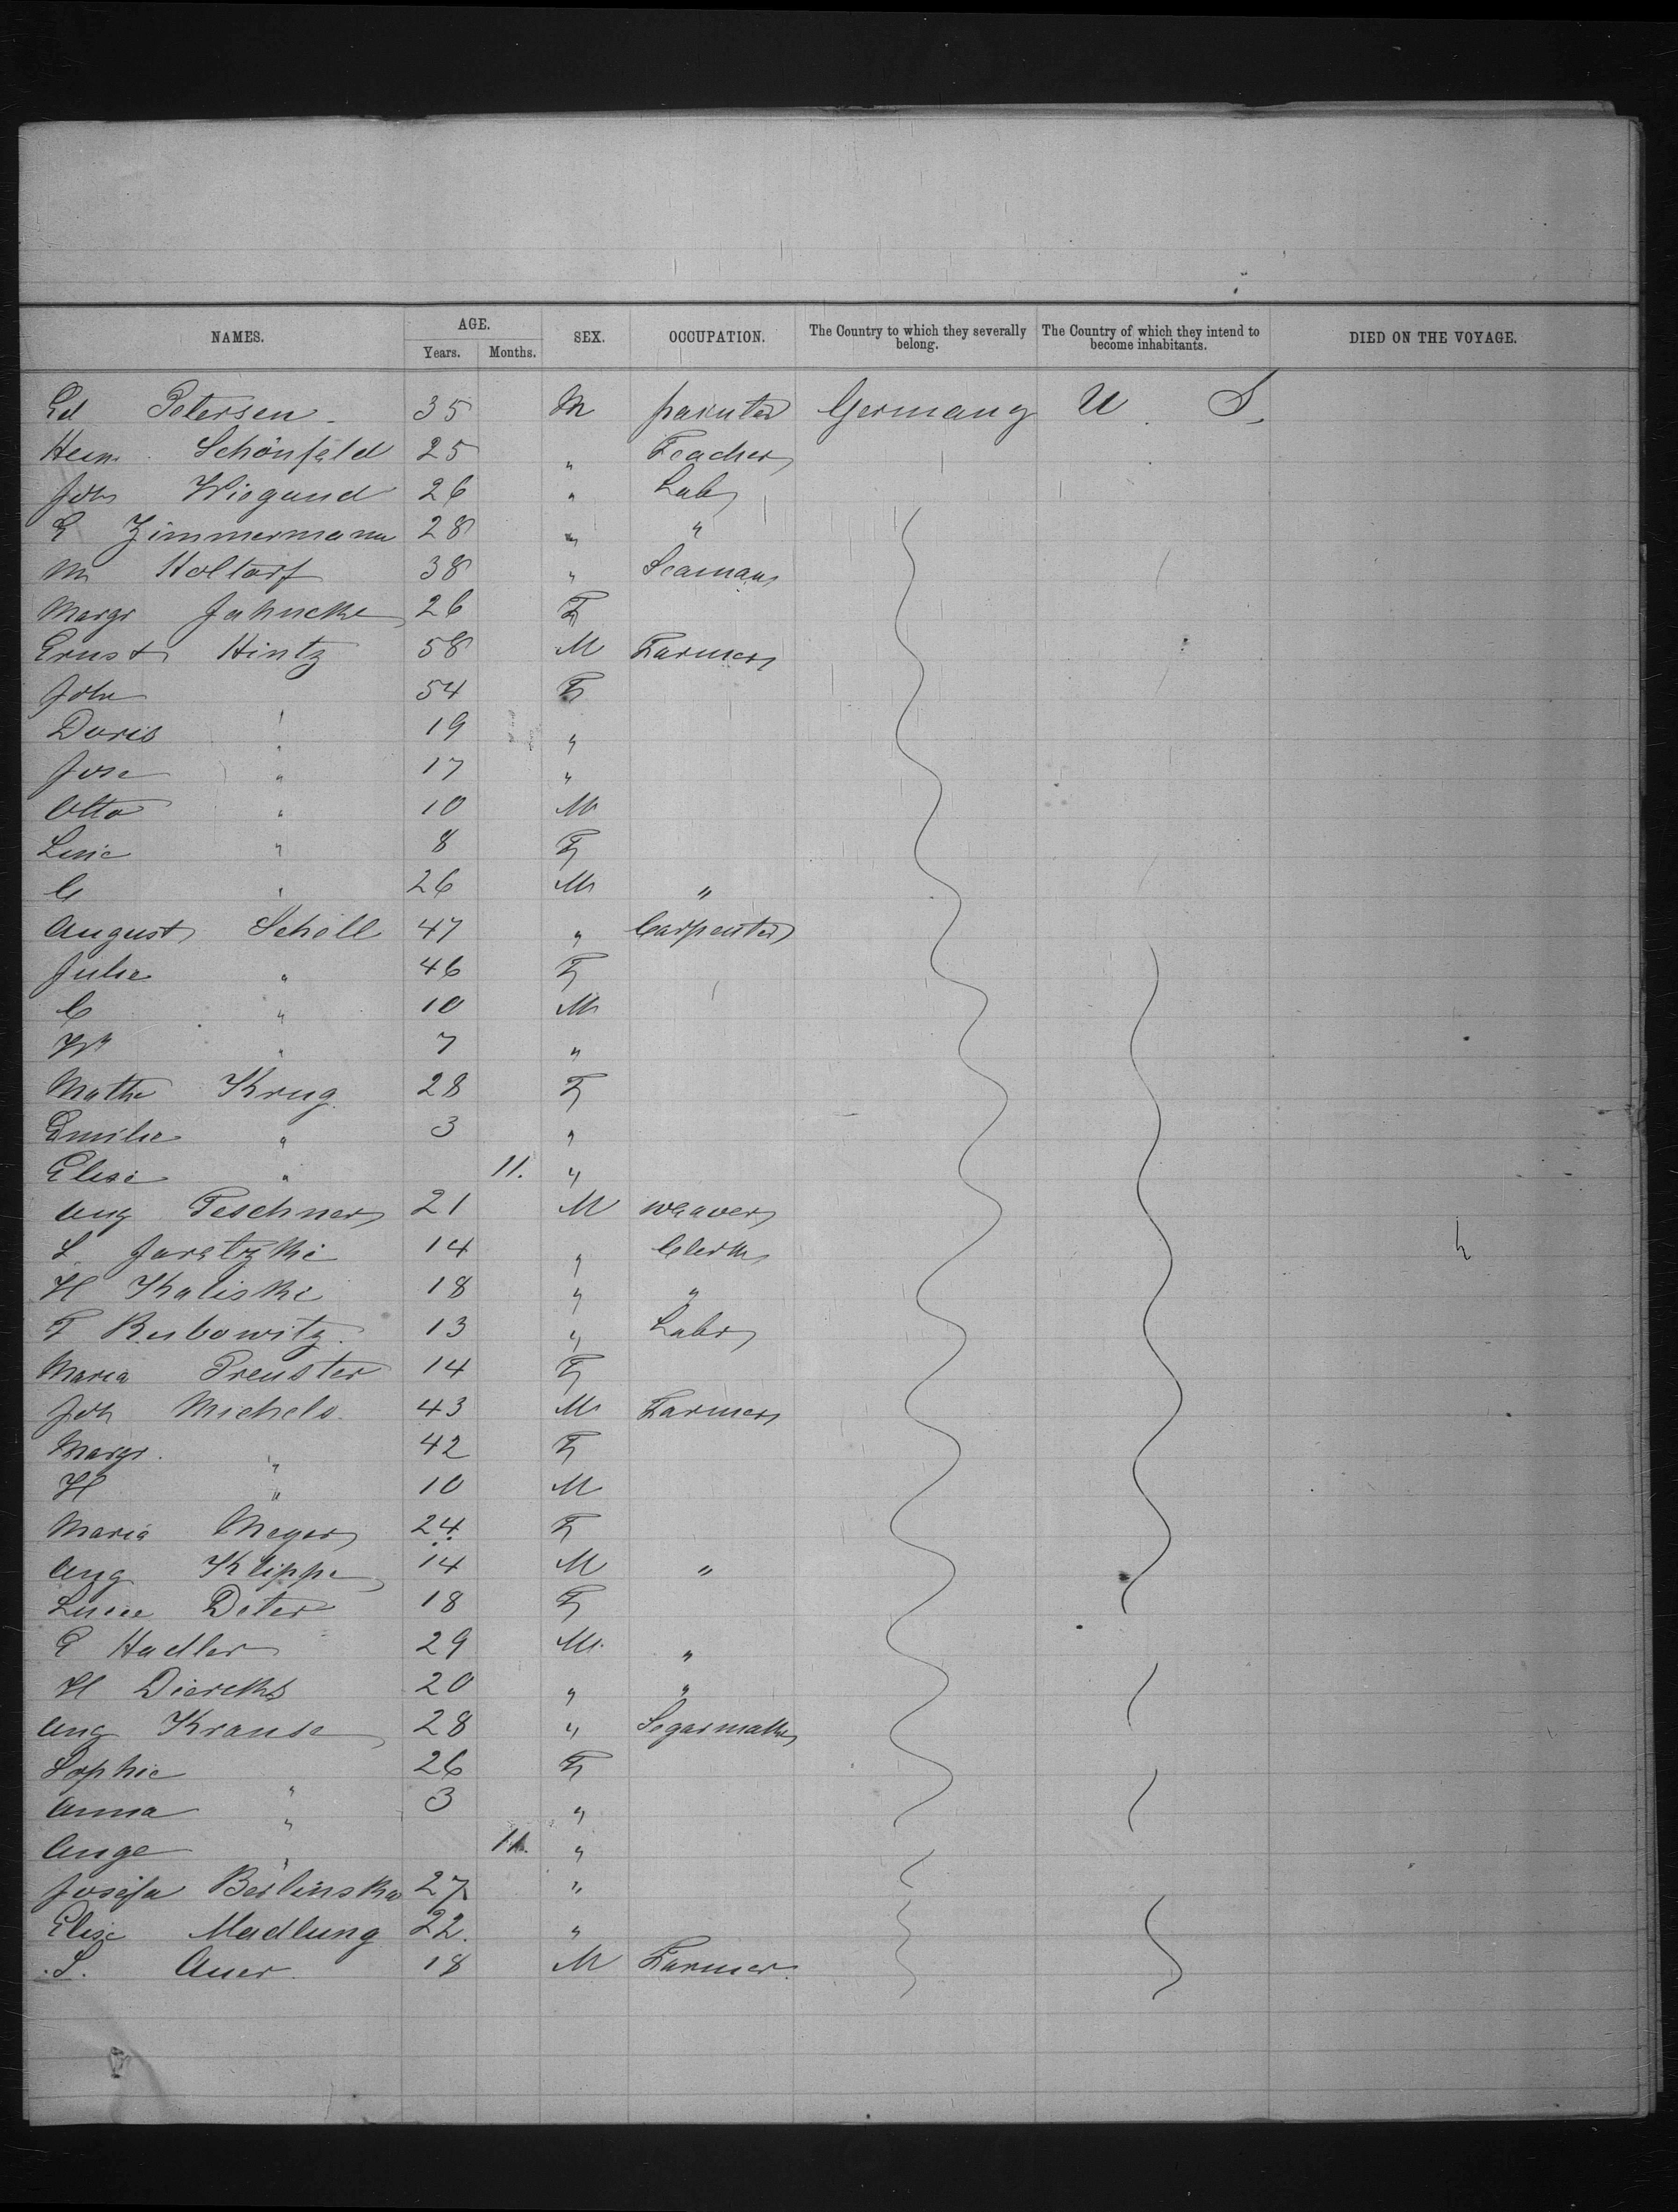 NAMES. AGE. Years. Months. SEX. OCCUPATION. The Country to which they severally belong. The Country of which they intend to become inhabitants. DIED ON THE VOYAGE.
Ed Petersen 35 M painter Germany U. S.
Herm. Schönfeld 25 " Teacher
Joh Wiegand 26 " Labr
E Zimmermann 28 " "
M Holtorf 38 " Seaman
Margr Jahncke 26 F
Ernst Hintz 58 M Farmer
Joh 54 F
Doris " 19 "
Jose " 17 "
Otto " 10 M
Line " 8 F
C " 26 M "
August Scholl 47 " Carpenter
Julie " 46 F
C " 10 M
Wm " 7 "
Mathe Krug 28 F
Emilie " 3 "
Elise " 11. "
Aug Teschner 21 M weaver
L. Jaretzki 14 " Clerk
H Kaliski 18 " "
T Rubowitz 13 " Labr
Maria Preuster 14 F
Joh Michels 43 M Farmer
Margr. " 42 F
H " 10 M
Maria Meyer 24 F
Aug Klippe 14 M "
Luise Deter 18 F
E Hadler 29 M "
H Diercks 20 " "
Aug Krause 28 " Segarmaker
Sophie " 26 F
Anna " 3 "
Auge " 11. "
Josefa Berlinska 27 "
Elise Madlung 22. "
S. Auer 18 M Farmer.